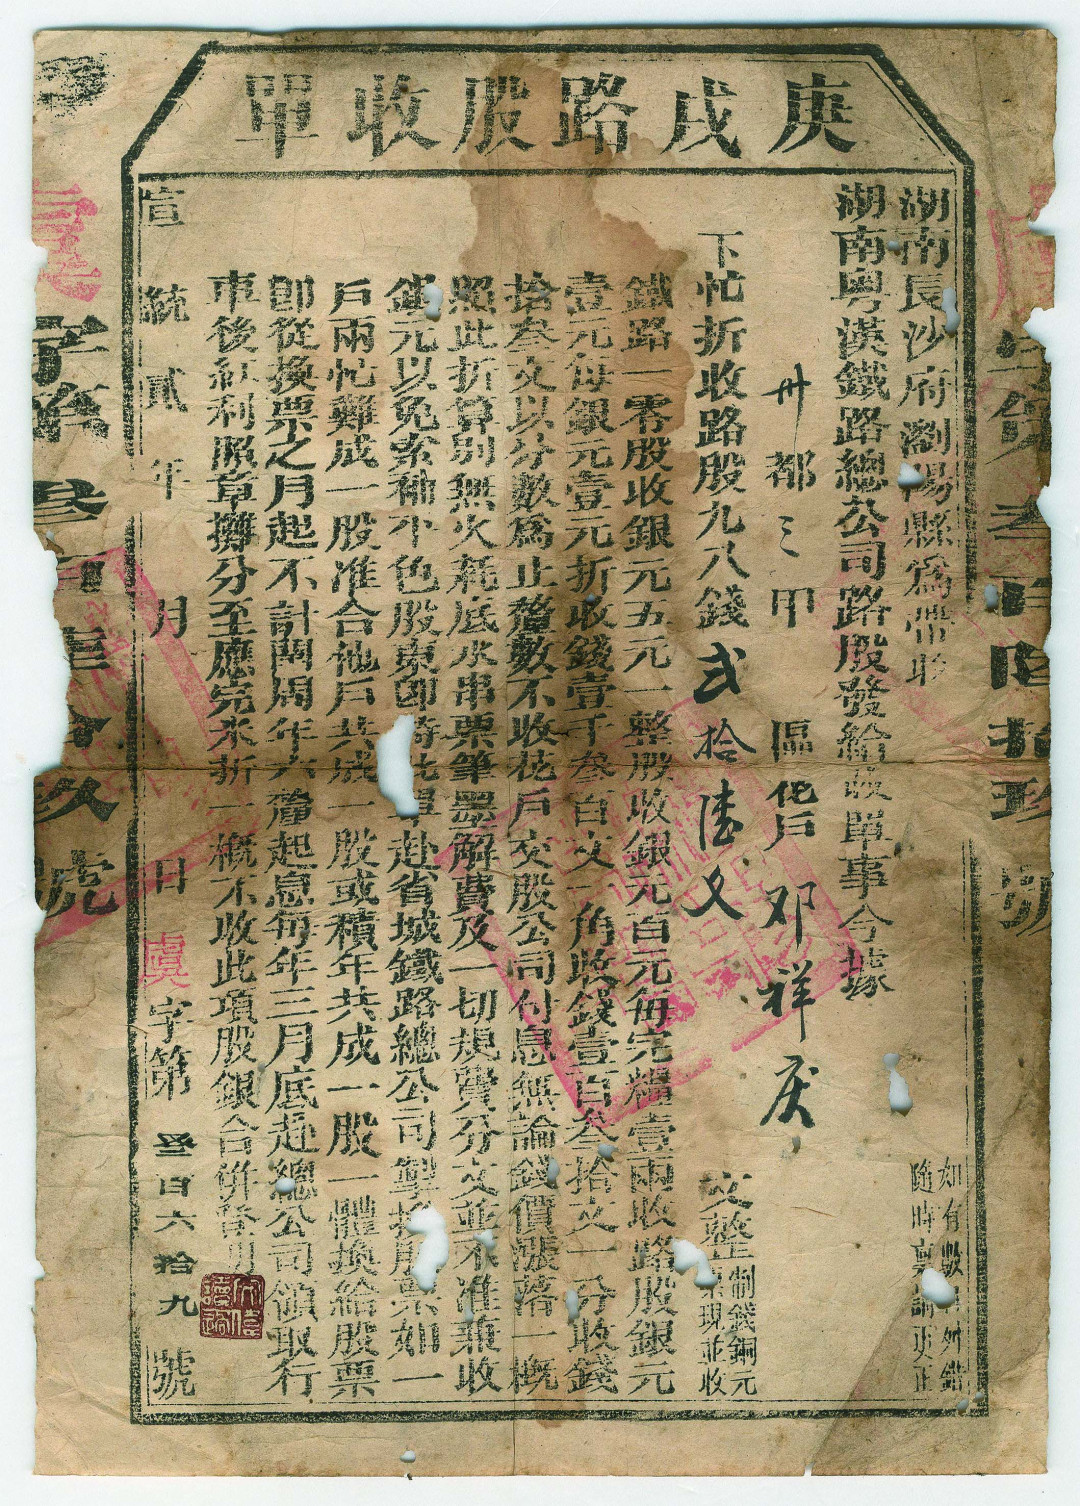 庚戌路股收單
湖南長沙府瀏陽縣為
湖南粵漢鐵路總公司路股發給收單事今據
如有數目舛錯
隨時更正
卅都三甲 區花戶邓祥庆
下忙折收路股九八錢弍拾陸文 文整
制錢銅元
票現並收
鐵路一零股收銀元五元一整股收銀元百元每完糧壹兩收路股銀元
壹元每銀元壹元折收錢壹千叁百文一角收錢壹百叁拾文一分收錢
拾叁文以分數為止釐數不收花戶交股公司付息無論錢價漲落一概
照此折算別無火耗底水串票筆墨解費及一切規費分文並不准兼收
銀元以免索補平色股東卽持此單赴省城鐵路總公司掣換股票如一
戶兩忙難成一股准合他戶共成一股或積年共成一股一體換給股票
卽從換票之月起不計閏周年六釐起息每年三月底赴總公司領取行
車後紅利照章攤分至應完米折一概不收此項股銀合併登明
宣統貳年 月 日虞字第叁百六拾九號
字第叁百 拾玖號